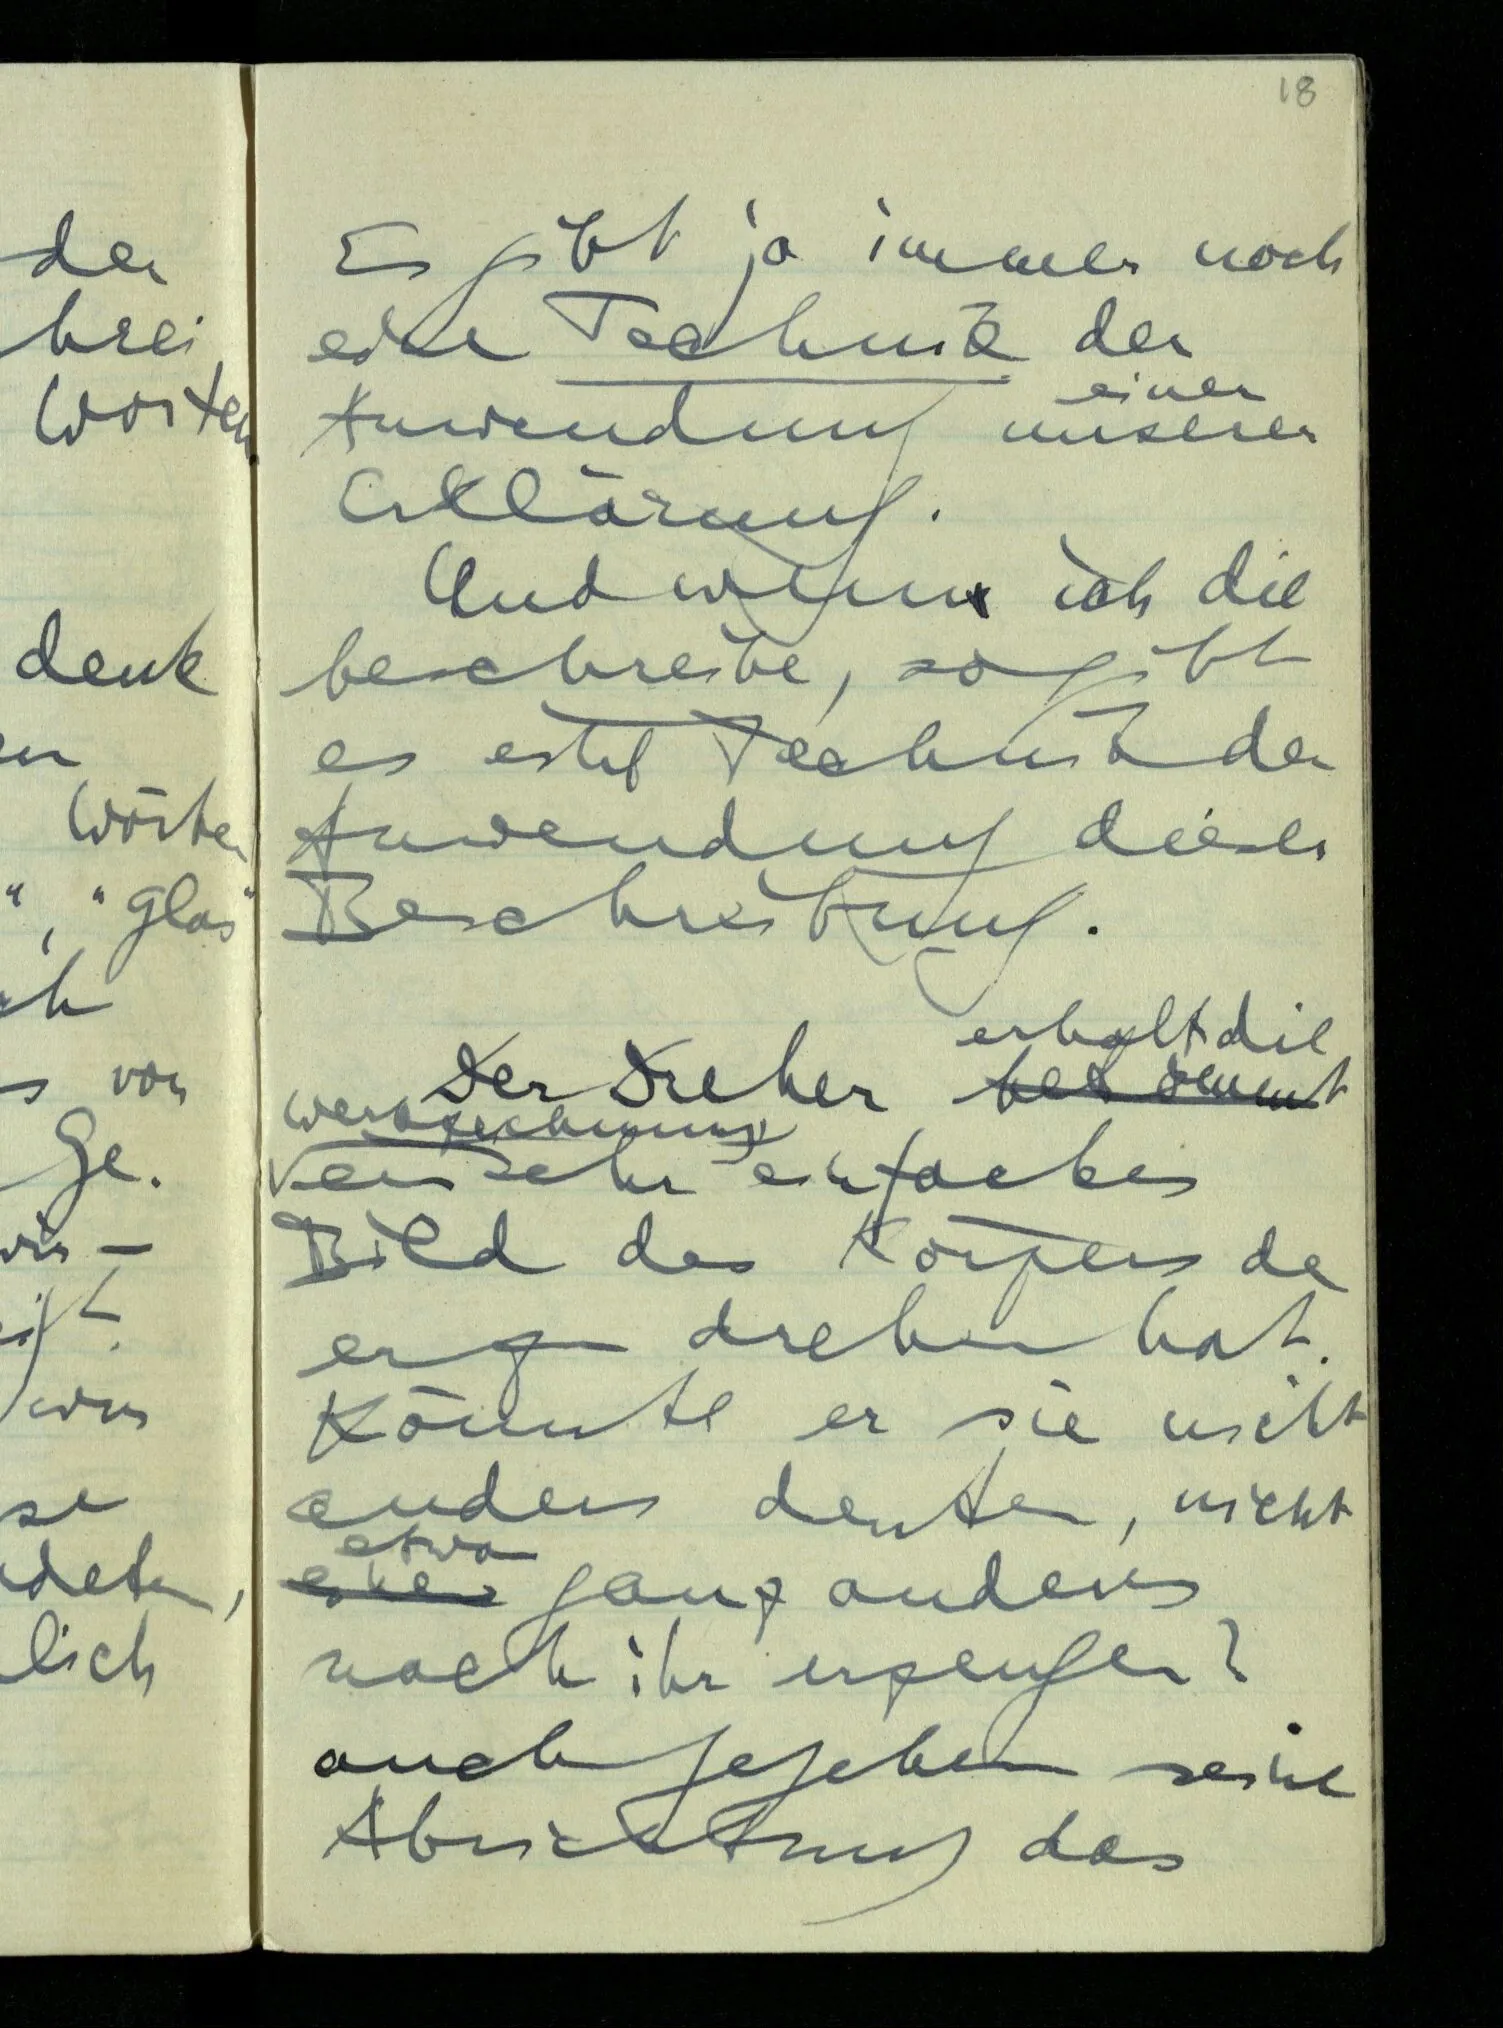 18
Es gibt ja immer noch
eine Technik der
einer
Anwendung unserer
Erklärung.
Und wenn ich die
beschreibe, so gibt
es eine Technik der
Anwendung dieser
Beschreibung.
erhält die
Der Dreher bekommt
Werkzeichnung
ein sehr einfaches
Bild des Körpers den
er zu drehen hat.
Könnte er sie nicht
anders deuten, nicht
etwa
ganz anderes
nach ihr erzeugen?
auch gegeben seine
Abrichtung das
der
brei
Worten
denk
en
Wörter
“, “Glas”
ch
s von
Ge.
wir –
wir
se
deten,
lich